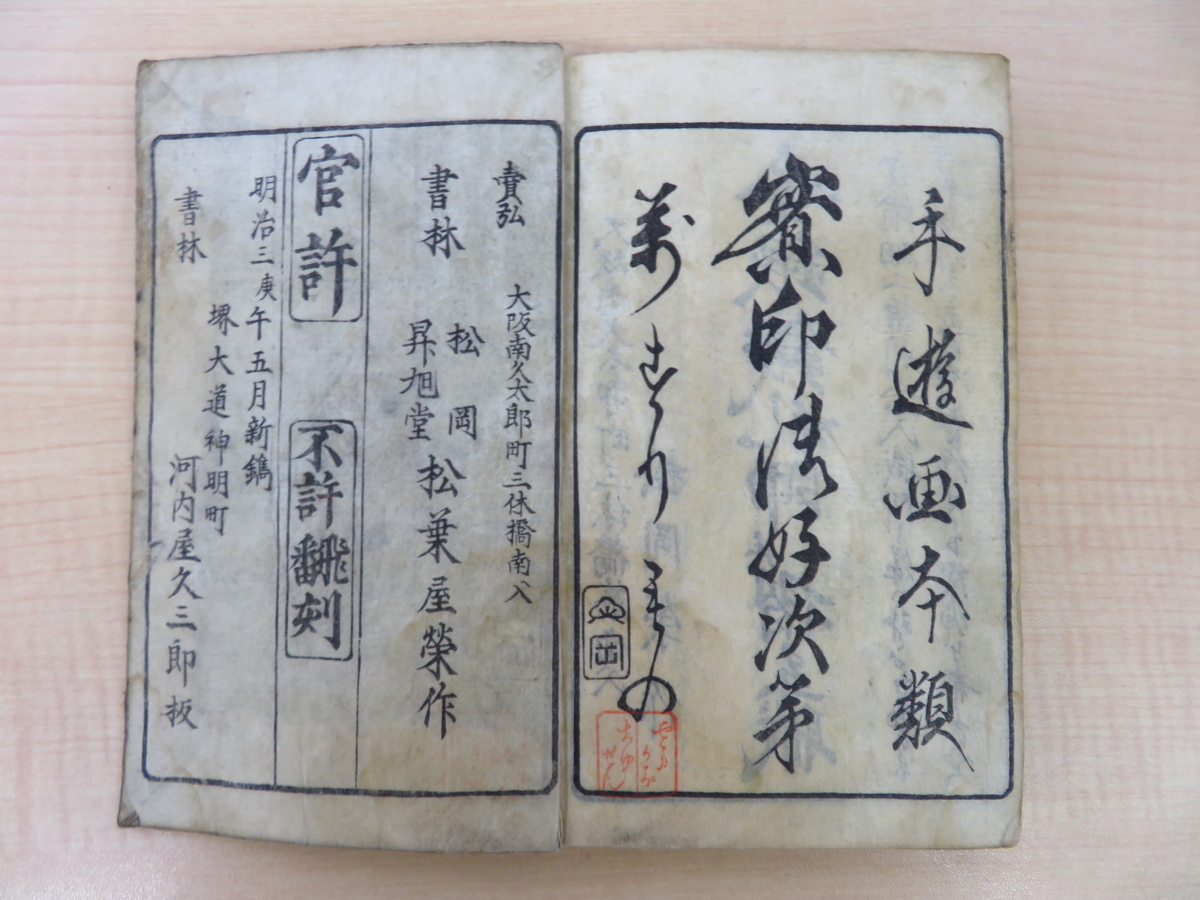 手遊画本類
実印御好次第
萬すりもの
賣弘
大阪南久太郎町三休橋南入
書林
松岡
昇旭堂
松葉屋榮作
官許
不許翻刻
明治三庚午五月新鐫
堺大道神明町
書林
河内屋久三郎板